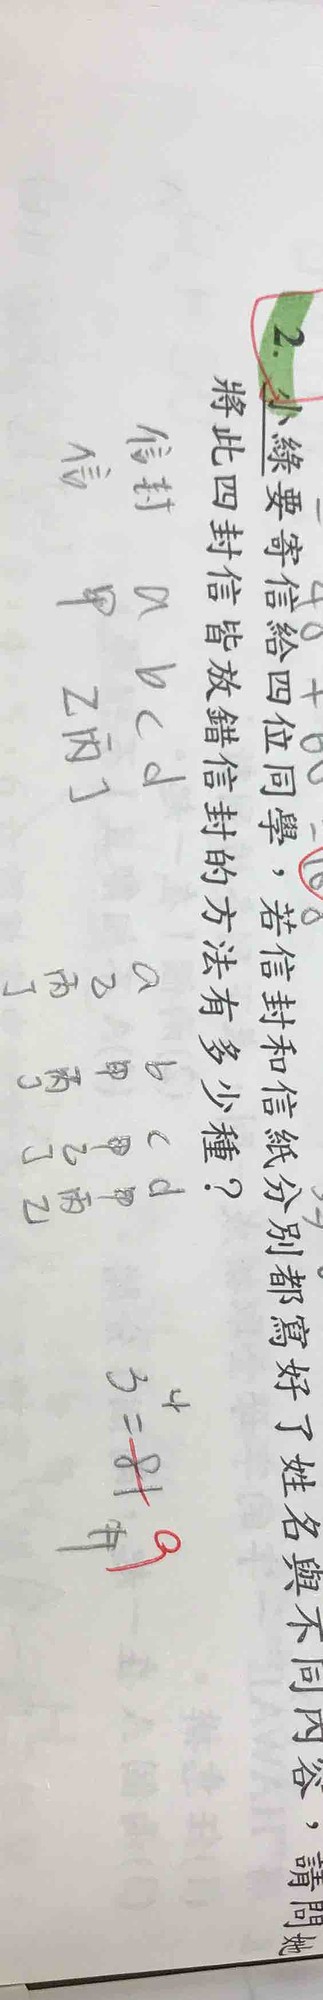 2. 小綠要寄信給四位同學，若信封和信紙分別都寫好了姓名與不同內容，請問她
將此四封信皆放錯信封的方法有多少種？
信封 a b c d
信 甲 乙 丙 丁
a b c d
乙 甲 甲 甲
丙 丙 乙 丙
丁 丁 丁 乙
3⁴ = 81 9